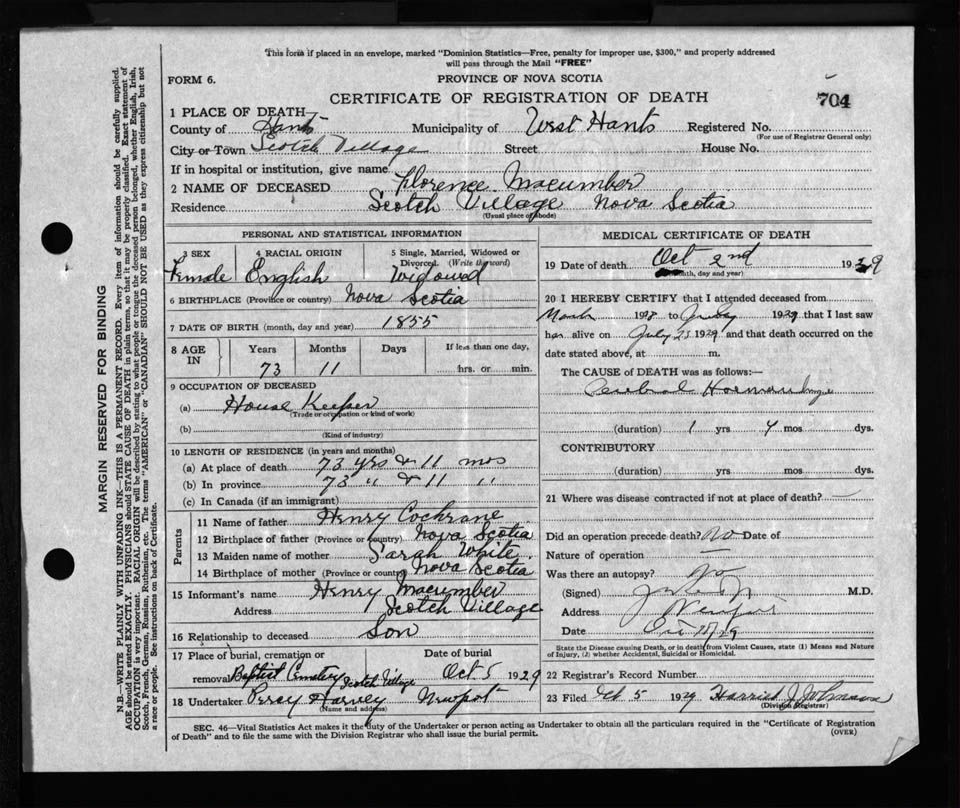 This form if placed in an envelope, marked "Dominion Statistics—Free, penalty for improper use, $300," and properly addressed
will pass through the Mail "FREE"
FORM 6.
PROVINCE OF NOVA SCOTIA
CERTIFICATE OF REGISTRATION OF DEATH
704
1 PLACE OF DEATH—
County of Hants Municipality of West Hants Registered No.
(For use of Registrar General only)
City or Town Scotch Village Street House No.
If in hospital or institution, give name
2 NAME OF DECEASED Florence Macumber
Residence Scotch Village Nova Scotia
(Usual place of abode)
PERSONAL AND STATISTICAL INFORMATION
3 SEX 4 RACIAL ORIGIN 5 Single, Married, Widowed or Divorced. (Write the word)
Female English Widowed
6 BIRTHPLACE (Province or country) Nova Scotia
7 DATE OF BIRTH (month, day and year) 1855
8 AGE IN Years Months Days If less than one day,
73 11 hrs. or min.
9 OCCUPATION OF DECEASED
(a) House Keeper
(Trade or occupation or kind of work)
(b)
(Kind of industry)
10 LENGTH OF RESIDENCE (in years and months)
(a) At place of death 73 yrs & 11 mos
(b) In province 73 " & 11 "
(c) In Canada (if an immigrant)
Parents
11 Name of father Henry Cochrane
12 Birthplace of father (Province or country) Nova Scotia
13 Maiden name of mother Sarah White.
14 Birthplace of mother (Province or country) Nova Scotia
15 Informant's name Henry Macumber
Address Scotch Village
16 Relationship to deceased Son
17 Place of burial, cremation or removal Baptist Cemetery Scotch Village
Date of burial Oct 5 1929
18 Undertaker Percy Harvey Newport
(Name and address)
MEDICAL CERTIFICATE OF DEATH
19 Date of death Oct 2nd 1929
(Month, day and year)
20 I HEREBY CERTIFY that I attended deceased from
March 1928 to July 1929 that I last saw
her alive on July 23 1929 and that death occurred on the
date stated above, at m.
The CAUSE of DEATH was as follows:—
Cerebral Hormorrhage
(duration) 1 yrs 4 mos dys.
CONTRIBUTORY
(duration) yrs mos dys.
21 Where was disease contracted if not at place of death?
Did an operation precede death? No Date of
Nature of operation
Was there an autopsy? No
(Signed) M.D.
Address Newport
Date Oct 29
State the Disease causing Death, or in death from Violent Causes, state (1) Means and Nature
of Injury, (2) whether Accidental, Suicidal or Homicidal.
22 Registrar's Record Number
23 Filed Oct 5 1929 Harriet J. Johnson
(Division Registrar)
SEC. 46—Vital Statistics Act makes it the duty of the Undertaker or person acting as Undertaker to obtain all the particulars required in the "Certificate of Registration
of Death" and to file the same with the Division Registrar who shall issue the burial permit.
(OVER)
MARGIN RESERVED FOR BINDING
N.B.—WRITE PLAINLY WITH UNFADING INK—THIS IS A PERMANENT RECORD. Every item of information should be carefully supplied.
AGE should be stated EXACTLY. PHYSICIANS should STATE CAUSE OF DEATH in plain terms, so that it may be properly classified. Exact statement of
OCCUPATION is very important. RACIAL ORIGIN will be described by stating to what people or tongue the deceased person belonged, whether English, Irish,
Scotch, French, German, Russian, Ruthenian, etc. The terms "AMERICAN" or "CANADIAN" SHOULD NOT BE USED as they express citizenship but not
a race or people. See instructions on back of Certificate.